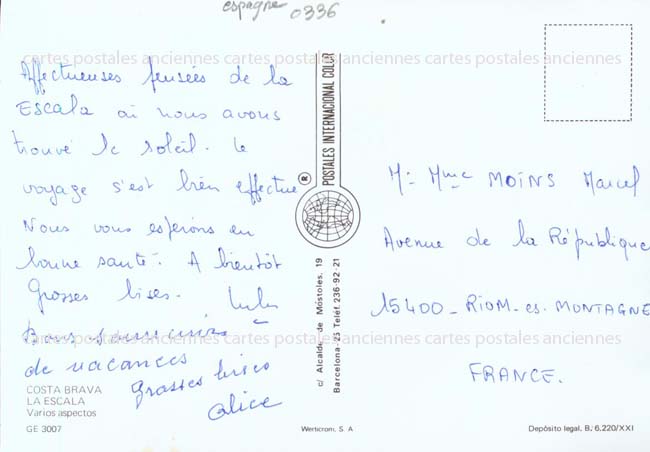 espagne 0336
cartes postales anciennes cartes postales anciennes cartes postales anciennes
Affectueuses pensées de la
Escala où nous avons
trouvé le soleil. Le
voyage s'est bien effectué
Nous vous espérons en
bonne santé. A bientôt
Grosses bises.
Bons souvenirs
de vacances
Grosses bises
Alice
COSTA BRAVA
LA ESCALA
Varios aspectos
GE 3007
POSTALES INTERNACIONAL COLOR
®
c/ Alcalde de Móstoles, 19
Barcelona-25 Teléf. 236-92-21
Mr Mme MOINS Marcel
Avenue de la République
15400 - RIOM-es-MONTAGNE
cartes postales anciennes cartes postales anciennes cartes postales anciennes
FRANCE.
Werticrom, S. A
Depósito legal, B. 6.220/XXI